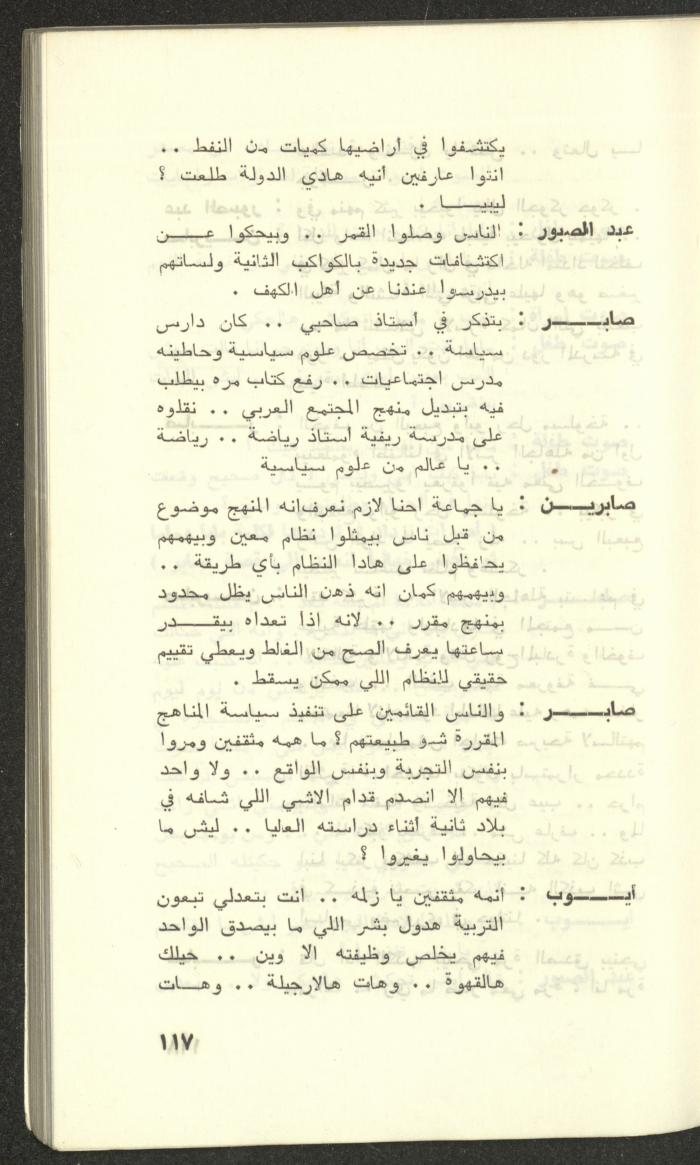 يكتشفوا في اراضيها كميات من النفط ..
انتوا عارفين انيه هادي الدولة طلعت ؟
ليبيـــا .
عبد الصبور : الناس وصلوا القمر .. وبيحكوا عـــن
اكتشافات جديدة بالكواكب الثانية ولساتهم
بيدرسوا عندنا عن اهل الكهف .
صابـــــر : بتذكر في أستاذ صاحبي .. كان دارس
سياسة .. تخصص علوم سياسية وحاطينه
مدرس اجتماعيات .. رفع كتاب مره بيطلب
فيه بتبديل منهج المجتمع العربي .. نقلوه
على مدرسة ريفية أستاذ رياضة .. رياضة
.. يا عالم من علوم سياسية
صابريـــن : يا جماعة احنا لازم نعرف انه المنهج موضوع
من قبل ناس بيمثلوا نظام معين وبيهمهم
يحافظوا على هادا النظام بأي طريقة ..
وبيهمهم كمان انه ذهن الناس يظل محدود
بمنهج مقرر .. لانه اذا تعداه بيقـــدر
ساعتها يعرف الصح من الغلط ويعطي تقييم
حقيقي للنظام اللي ممكن يسقط .
صابـــــر : والناس القائمين على تنفيذ سياسة المناهج
المقررة شو طبيعتهم ؟ ما همه مثقفين ومروا
بنفس التجربة وبنفس الواقع .. ولا واحد
فيهم الا انصدم قدام الاشي اللي شافه في
بلاد ثانية أثناء دراسته العليا .. ليش ما
بيحاولوا يغيروا ؟
أيـــــوب : انمه مثقفين يا زله .. انت بتعدلي تبعون
التربية هدول بشر اللي ما بيصدق الواحد
فيهم يخلص وظيفته الا وين .. حيلك
هالقهوة .. وهات هالارجيلة .. وهـــات
١١٧